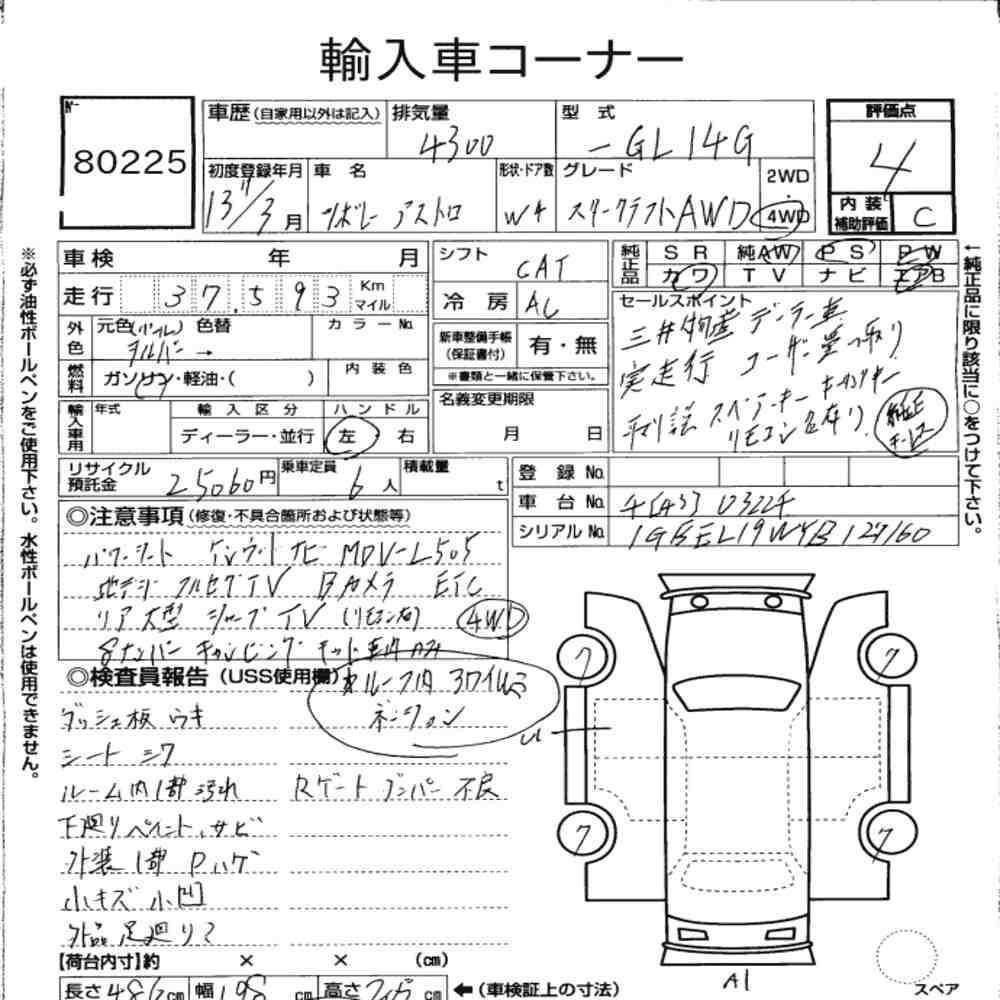 輸入車コーナー
No. 80225
車歴 (自家用以外は記入) 排気量 4300 型式 -GL14G
評価点 4
初度登録年月 13 11/3 月 車名 シボレー アストロ 形状・ドア数 W4 グレード スタークラフトAWD 2WD 4WD
内装補助評価 C
車検 年 月
走行 37,593 Km マイル
シフト CAT
冷房 AC
純正品 SR 純AW PS PW
カワ TV ナビ エアB
外色 元色 (パール) 色替 カラーNo.
シルバー →
燃料 ガソリン・軽油・( ) 内装色
新車整備手帳 (保証書付) 有・無
※書類と一緒に保管下さい。
名義変更期限
月 日
セールスポイント
三井物産 ディーラー車
実走行 コーナー 乗っ取り
取説 スペアーキー キーレスキー
リモコン 2名有り
輸入車用 年式 輸入区分 ハンドル
ディーラー・並行 左 右
リサイクル預託金 25060円 乗車定員 6人 積載量 t
登録No.
車台No.
シリアルNo. 1GBEL19WYB127160
◎注意事項 (修復・不具合箇所および状態等)
パワーシート インダッシュナビ MDV-L505
地デジ フルセグTV Bカメラ ETC
リア大型 TV (リモコン有) 4WD
8ナンバー キャンピング キット 車内のみ
◎検査員報告 (USS使用欄)
ルーフ内
ダッシュ板 ウキ
シート シワ
ルーム内1部汚れ Rゲート ダンパー不良
下廻りペイント、サビ
外装1部 Pハゲ
小キズ 小凹
外品 足廻り
【荷台内寸】約 × × (cm)
長さ 486 cm 幅 198 cm 高さ cm ←(車検証上の寸法)
7 7
U1
7 7
A1
スペア
※必ず油性ボールペンをご使用下さい。水性ボールペンは使用できません。
↑純正品に限り該当に○をつけて下さい。